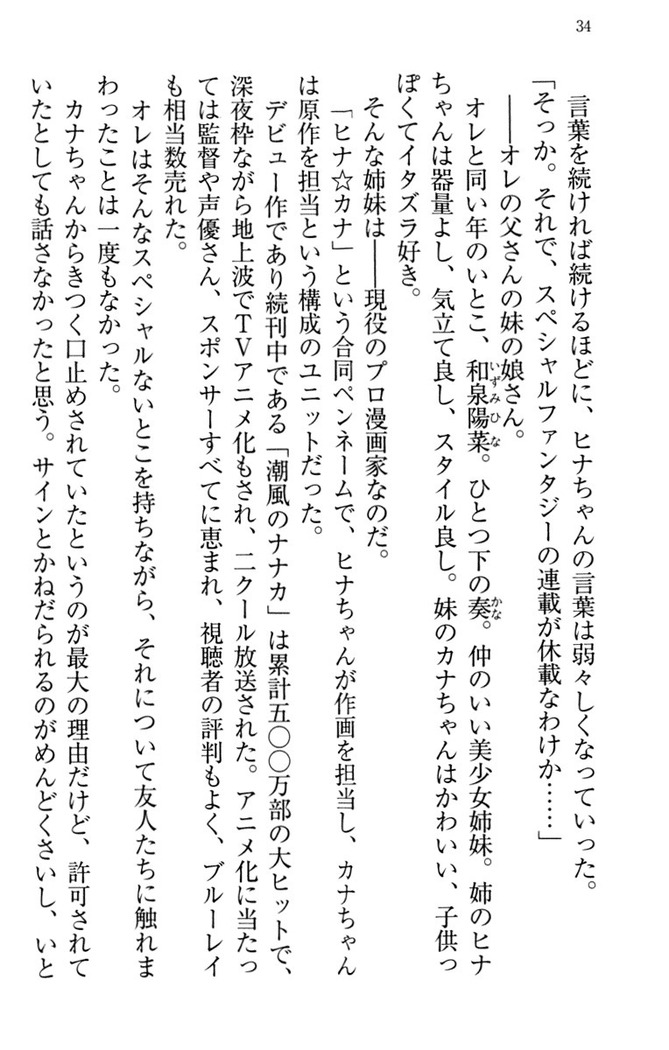 34
言葉を続ければ続けるほどに、ヒナちゃんの言葉は弱々しくなっていった。
「そっか。それで、スペシャルファンタジーの連載が休載なわけか……」
――オレの父さんの妹の娘さん。
オレと同い年のいとこ、和泉陽菜。ひとつ下の奏。仲のいい美少女姉妹。姉のヒナ
ちゃんは器量よし、気立て良し、スタイル良し。妹のカナちゃんはかわいい、子供っ
ぽくてイタズラ好き。
そんな姉妹は――現役のプロ漫画家なのだ。
「ヒナ☆カナ」という合同ペンネームで、ヒナちゃんが作画を担当し、カナちゃん
は原作を担当という構成のユニットだった。
デビュー作であり続刊中である「潮風のナナカ」は累計五〇〇万部の大ヒットで、
深夜枠ながら地上波でTVアニメ化もされ、二クール放送された。アニメ化に当たっ
ては監督や声優さん、スポンサーすべてに恵まれ、視聴者の評判もよく、ブルーレイ
も相当数売れた。
オレはそんなスペシャルないとこを持ちながら、それについて友人たちに触れま
わったことは一度もなかった。
カナちゃんからきつく口止めされていたというのが最大の理由だけど、許可されて
いたとしても話さなかったと思う。サインとかねだられるのがめんどくさいし、いと